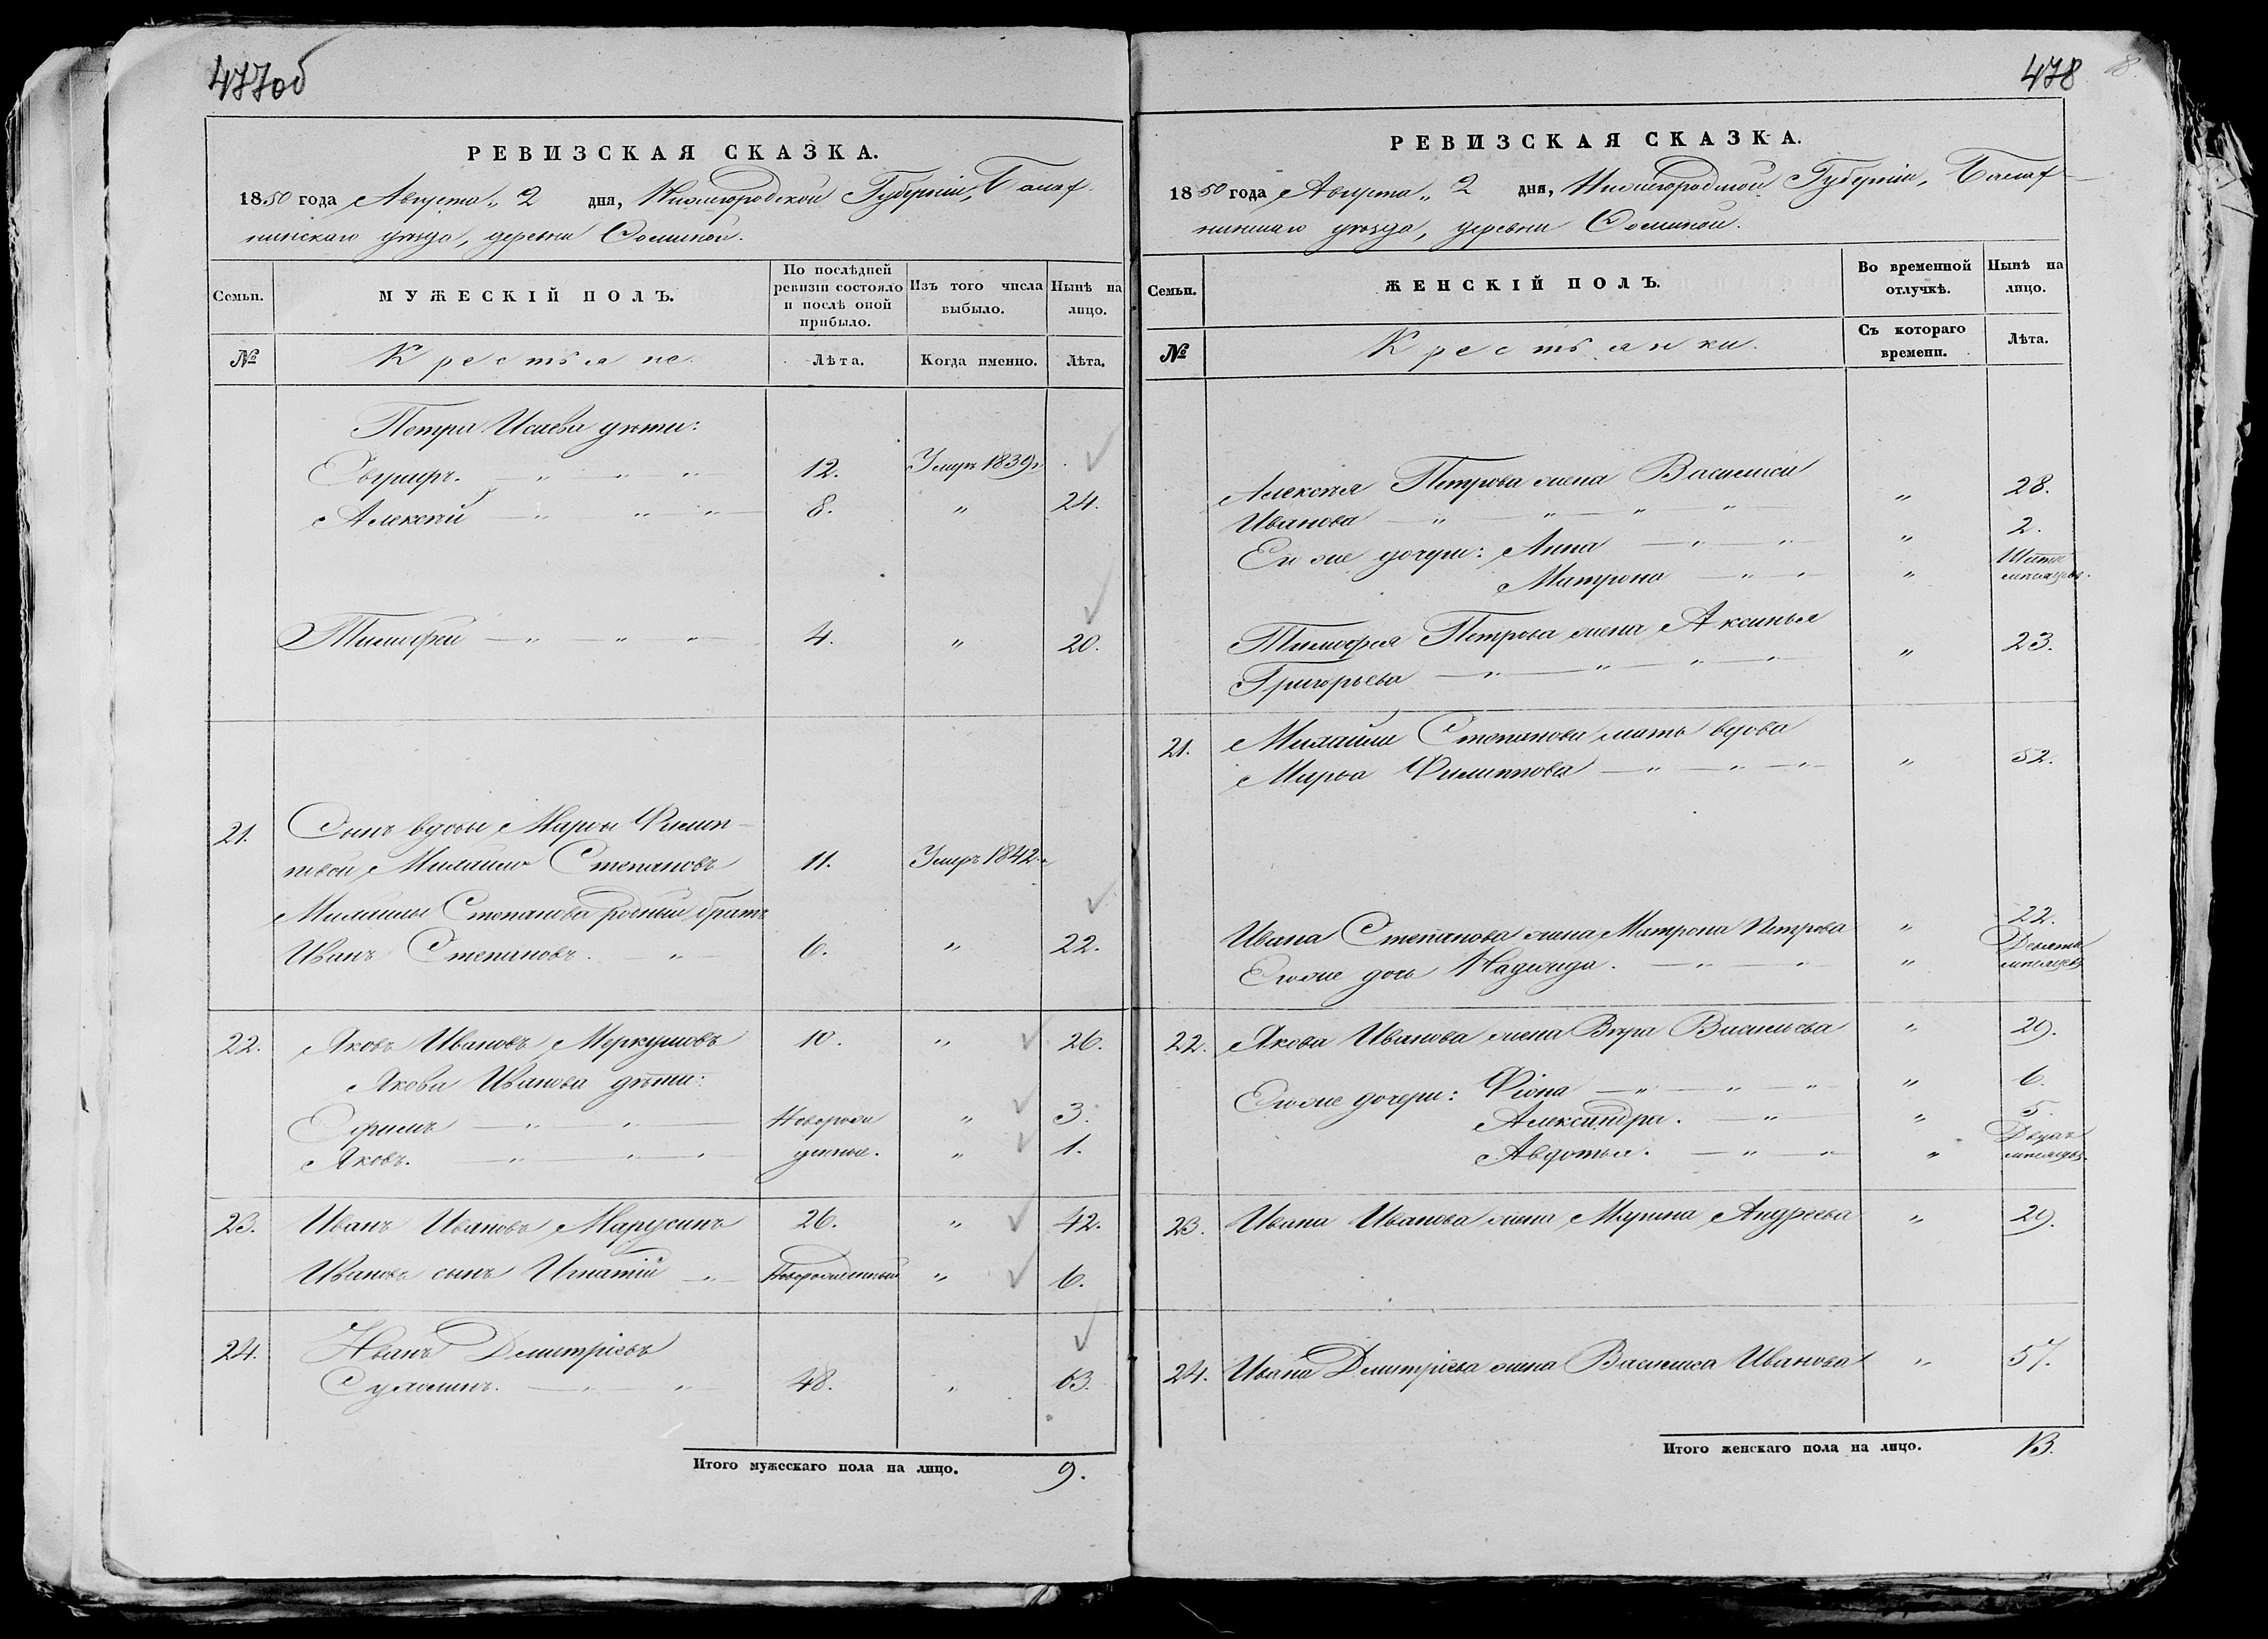 477об
РЕВИЗСКАЯ СКАЗКА.
1850 года Августа „ 2 дня, Нижегородской Губерніи, Балах-
нинскаго уѣзда, деревни
Семьи.
МУЖЕСКІЙ ПОЛЪ.
По послѣдней ревизіи состояло и послѣ оной прибыло.
Изъ того числа выбыло.
Нынѣ на лицо.
№
Крестьяне.
Лѣта.
Когда именно.
Лѣта.
Петра Исаева дѣти:
12. Умеръ 1839г.
Алексѣй — „ „ „ 8. „ 24.
Тимофей — „ — „ „ 4. „ 20.
21. Сынъ вдовы Марфы Филип-
повой Михайло Степановъ 11. Умеръ 1842 г.
Михайлы Степанова родный братъ
Иванъ Степановъ. „ 6. „ 22.
22. Яковъ Ивановъ Меркушовъ 10. „ 26.
Якова Иванова дѣти:
Ефимъ — „ „ Новорож „ 3.
Яковъ. — „ „ „ денные. „ 1.
23. Иванъ Ивановъ Марусинъ 26. „ 42.
Иванова сынъ Игнатій „ Новорожденный „ 6.
24. Иванъ Дмитріевъ
48. „ 63.
Итого мужескаго пола на лицо. 9.
478
18.
РЕВИЗСКАЯ СКАЗКА.
1850 года Августа „ 2 дня, Нижегородской Губерніи, Балах-
нинскаго уѣзда, деревни
Семьи.
ЖЕНСКІЙ ПОЛЪ.
Во временной отлучкѣ.
Нынѣ на лицо.
№
Крестьянки.
Съ котораго времени.
Лѣта.
Алексѣя Петрова жена Василиса
Иванова — „ „ „ „ „ 28.
Его же дочери: Анна — „ „ „ 2.
Матрона — „ „ „ мѣсяцевъ.
Тимофея Петрова жена Аксинья
Григорьева — „ „ „ „ „ 23.
21. Михайлы Степанова мать вдова
Марфа Филиппова — „ — „ — „ „ 52.
Ивана Степанова жена Матрона Петрова „ 22.
Его же дочь Надежда. — „ „ „ Девять мѣсяцевъ
22. Якова Иванова жена Вѣра Васильева „ 29.
Его же дочери: Фіона — „ „ „ „ 6.
Александра. — „ „ 5.
Авдотья. — „ „ „ Двухъ мѣсяцевъ.
23. Ивана Иванова жена Марина Андреева „ 29.
24. Ивана Дмитріева жена Василиса Иванова „ 57.
Итого женскаго пола на лицо. 13.